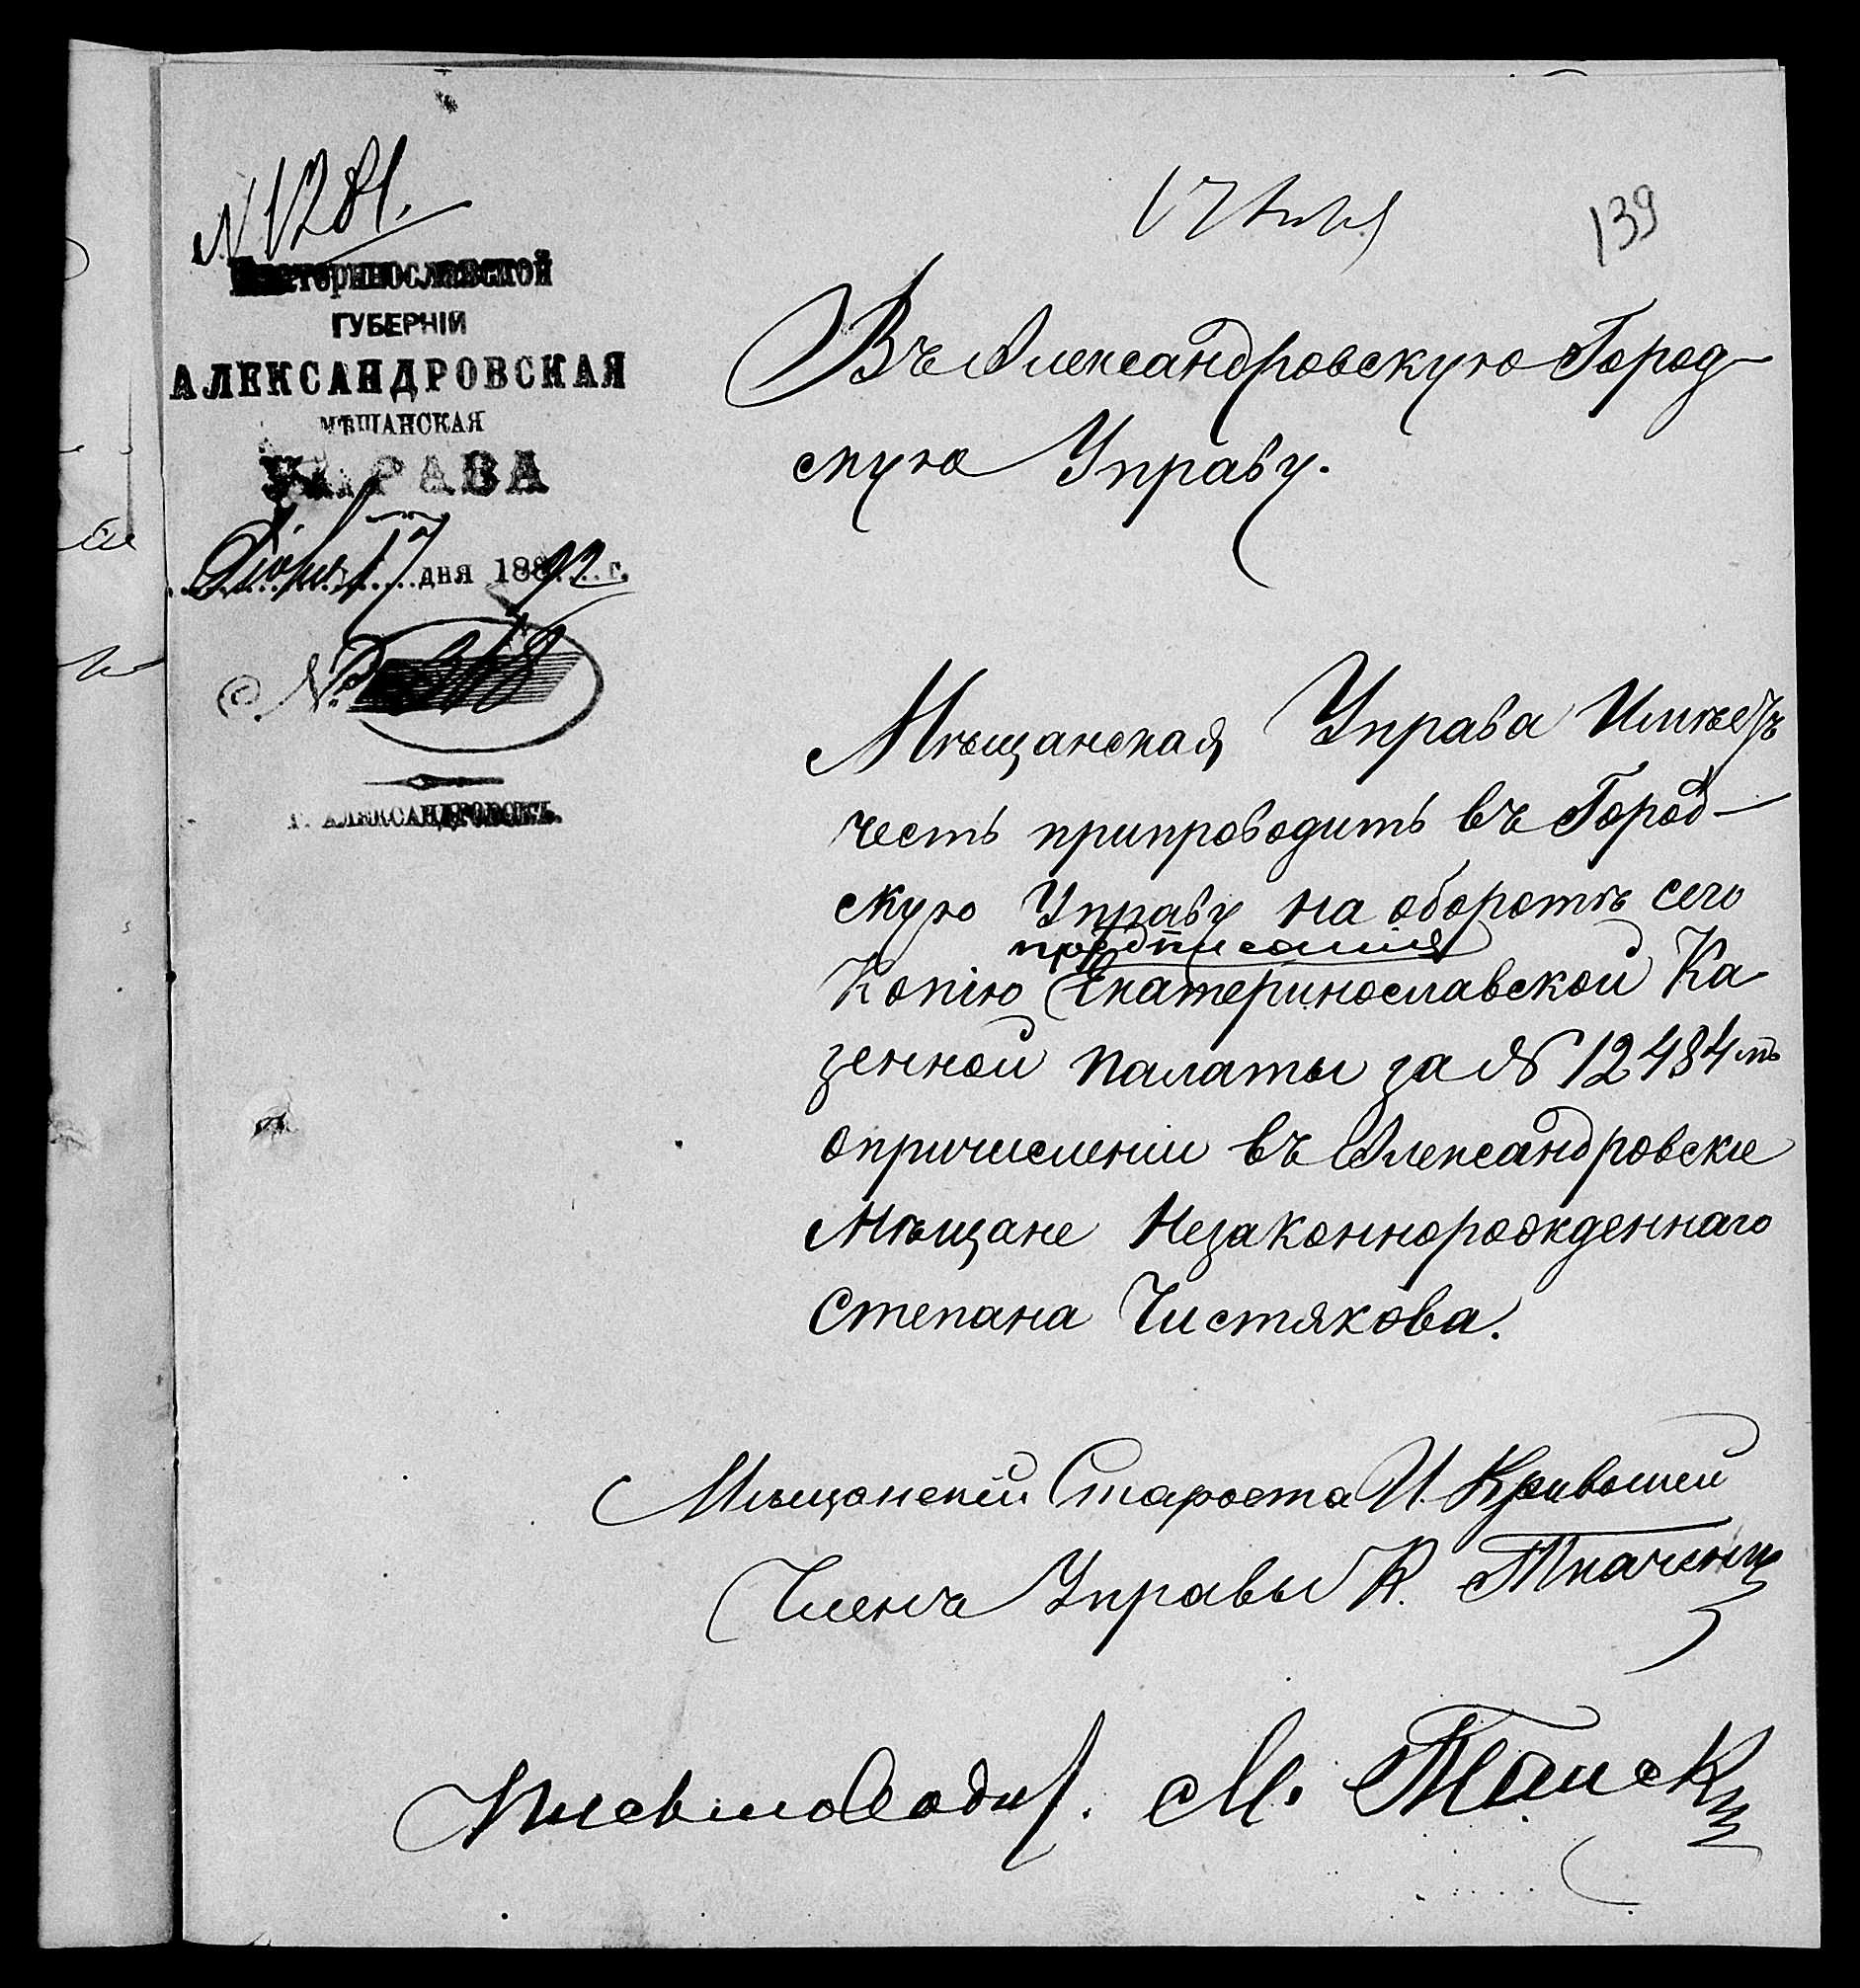 № 1281.
Екатеринославской
ГУБЕРНІИ
АЛЕКСАНДРОВСКАЯ
МѢЩАНСКАЯ
УПРАВА
17 дня 1892 г.
№
Г. АЛЕКСАНДРОВСКЪ.
17
139
Въ Александровскую Город-
скую Управу.
Мѣщанская Управа Имѣетъ
честь припроводить въ Город-
скую Управу на оборотѣ сего
предписанія
Копію Екатеринославской Ка
зенной палаты за № 12484мъ
опричисленіи въ Александровскіе
Мѣщане Незаконнорожденнаго
Степана Чистякова.
Мѣщанскій Староста И. Кривошей
Членъ Управы К. Ткаченко
Письмоводит. М.